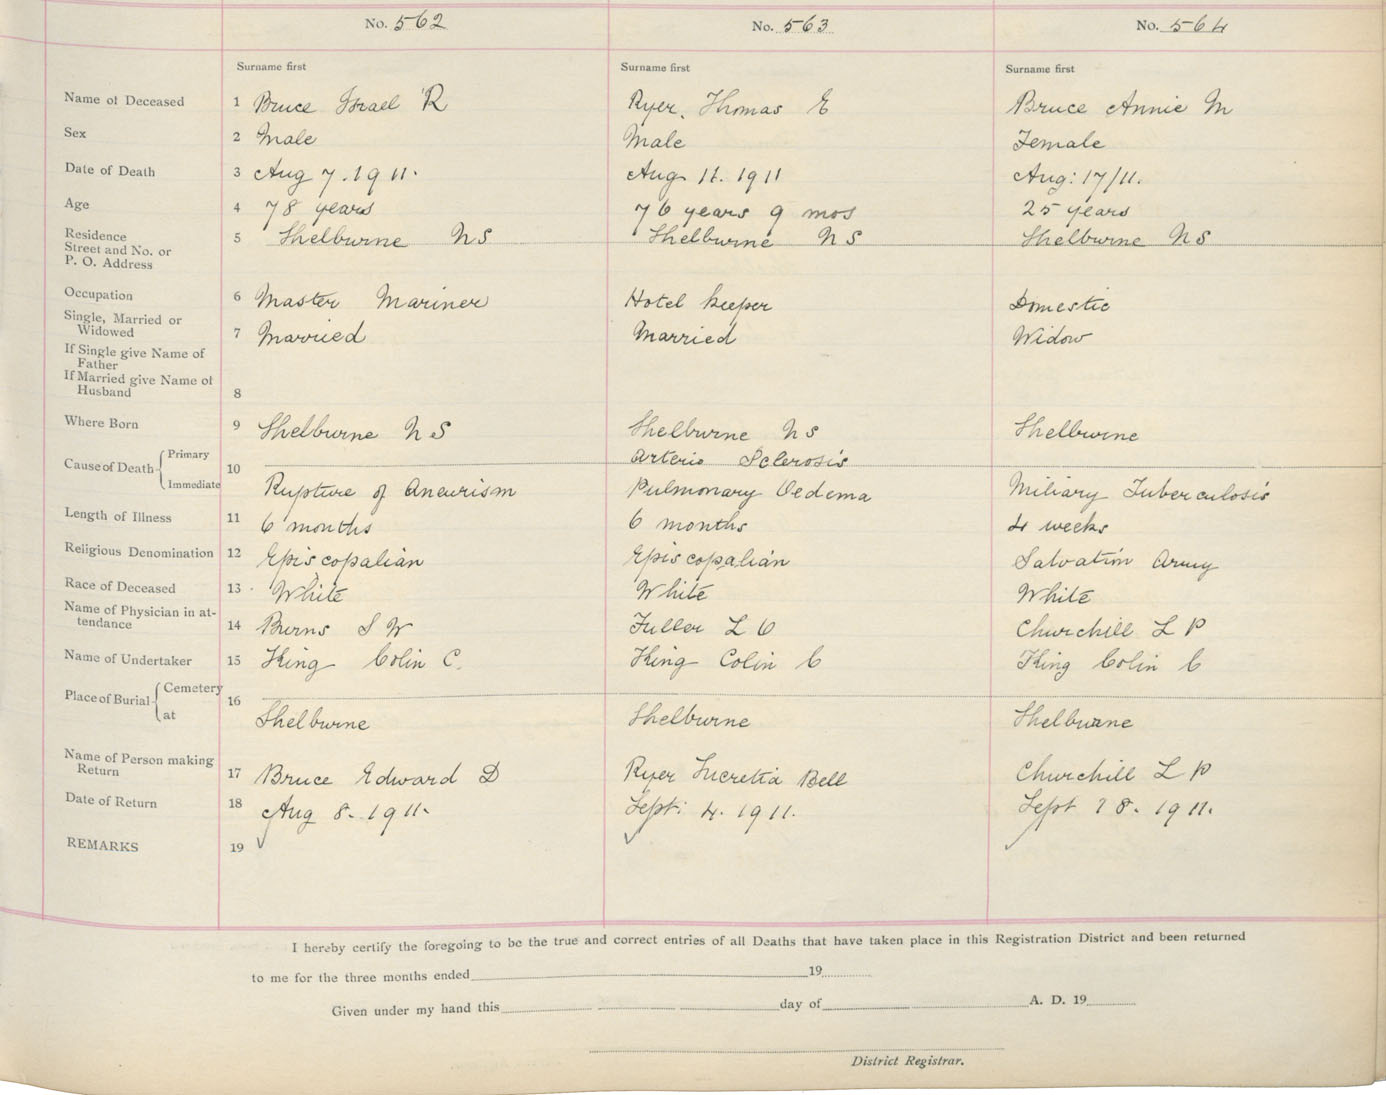 No. 562 No. 563 No. 564
Surname first Surname first Surname first
Name of Deceased 1 Bruce Israel R Ryer, Thomas E Bruce Annie M
Sex 2 Male Male Female
Date of Death 3 Aug 7. 1911. Aug 11. 1911 Aug: 17/11.
Age 4 78 years 76 years 9 mos 25 years
Residence
Street and No. or 5 Shelburne NS Shelburne NS Shelburne NS
P. O. Address
Occupation 6 Master Mariner Hotel keeper Domestic
Single, Married or
Widowed 7 Married Married Widow
If Single give Name of
Father
If Married give Name of
Husband 8
Where Born 9 Shelburne NS Shelburne NS Shelburne
Cause of Death Primary 10 Arterio Sclerosis
Immediate Rupture of Aneurism Pulmonary Oedema Miliary Tuberculosis
Length of Illness 11 6 months 6 months 4 weeks
Religious Denomination 12 Episcopalian Episcopalian Salvation Army
Race of Deceased 13 White White White
Name of Physician in at-
tendance 14 Burns S W Fuller L O Churchill L P
Name of Undertaker 15 King Colin C. King Colin C King Colin C
Place of Burial Cemetery 16
at Shelburne Shelburne Shelburne
Name of Person making
Return 17 Bruce Edward D Ryer Lucretia Bell Churchill L P
Date of Return 18 Aug 8. 1911. Sept: 4. 1911. Sept 28. 1911.
REMARKS 19
I hereby certify the foregoing to be the true and correct entries of all Deaths that have taken place in this Registration District and been returned
to me for the three months ended 19
Given under my hand this day of A. D. 19
District Registrar.